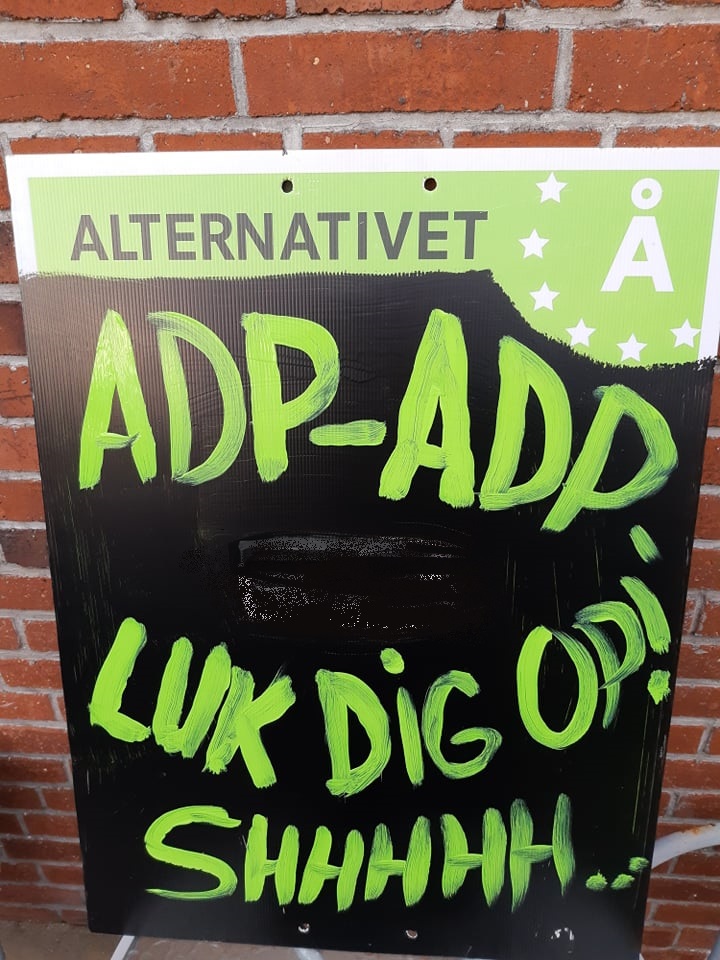 ALTERNATIVET
Å
ADP-ADP
LUK DiG OP!
SHHHHH...